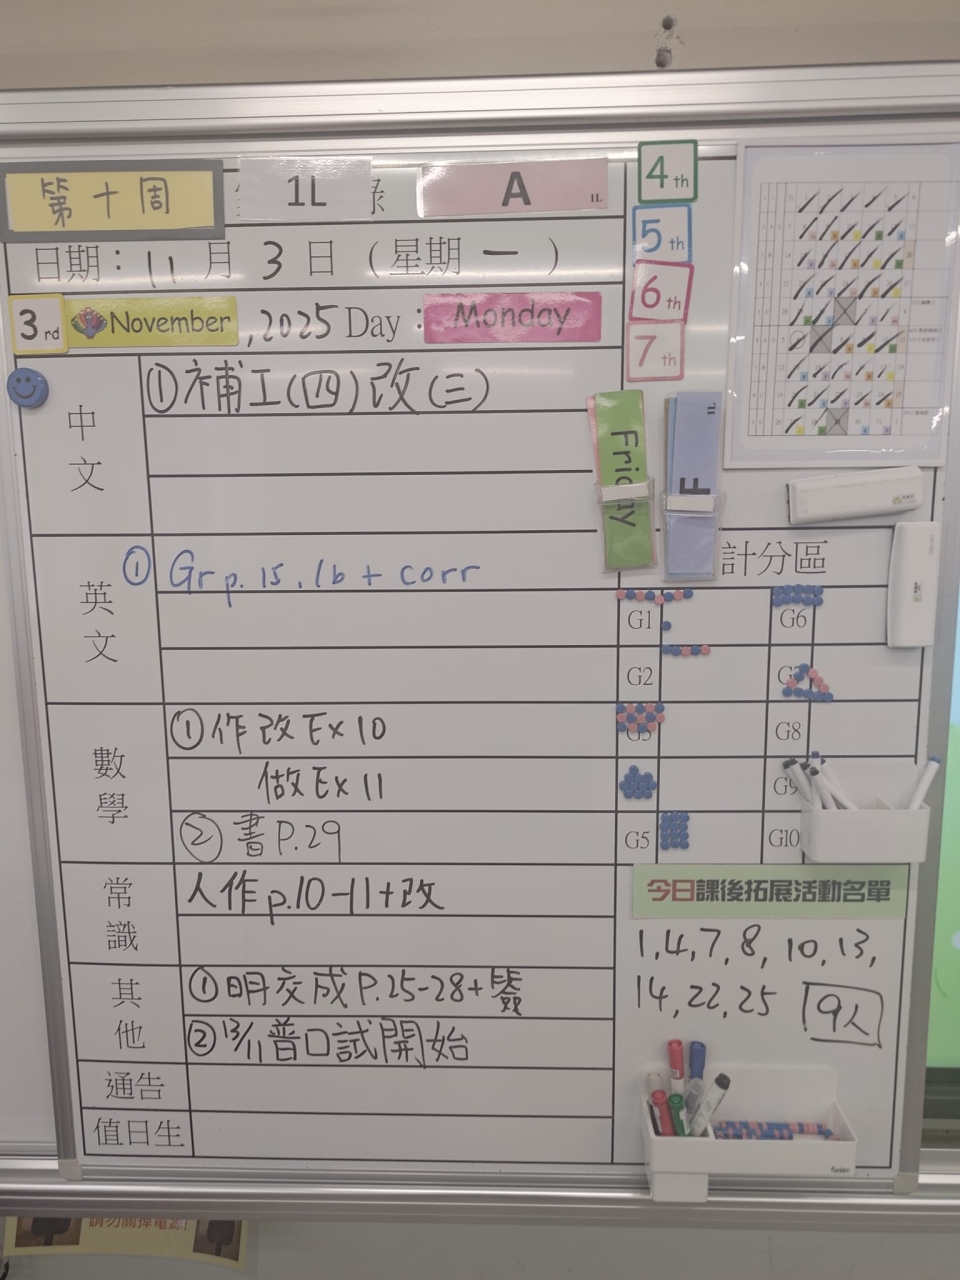 第十周
1L
錄
A
1L
日期：11月3日（星期一）
3rd November, 2025 Day：Monday
4th
5th
6th
7th
中文
①補工(四)改(三)
Friday
1L
F
英文
① Gr p.15, 16 + corr
計分區
G1
G2
G3
G5
G6
G7
G8
G9
G10
數學
①作改 Ex 10
做 Ex 11
②書 P.29
常識
人作 p.10-11+改
其他
①明交成 P.25-28+簽
②13/11普口試開始
通告
值日生
今日課後拓展活動名單
1,4,7,8,10,13,
14,22,25 9人
請勿關掉電源!